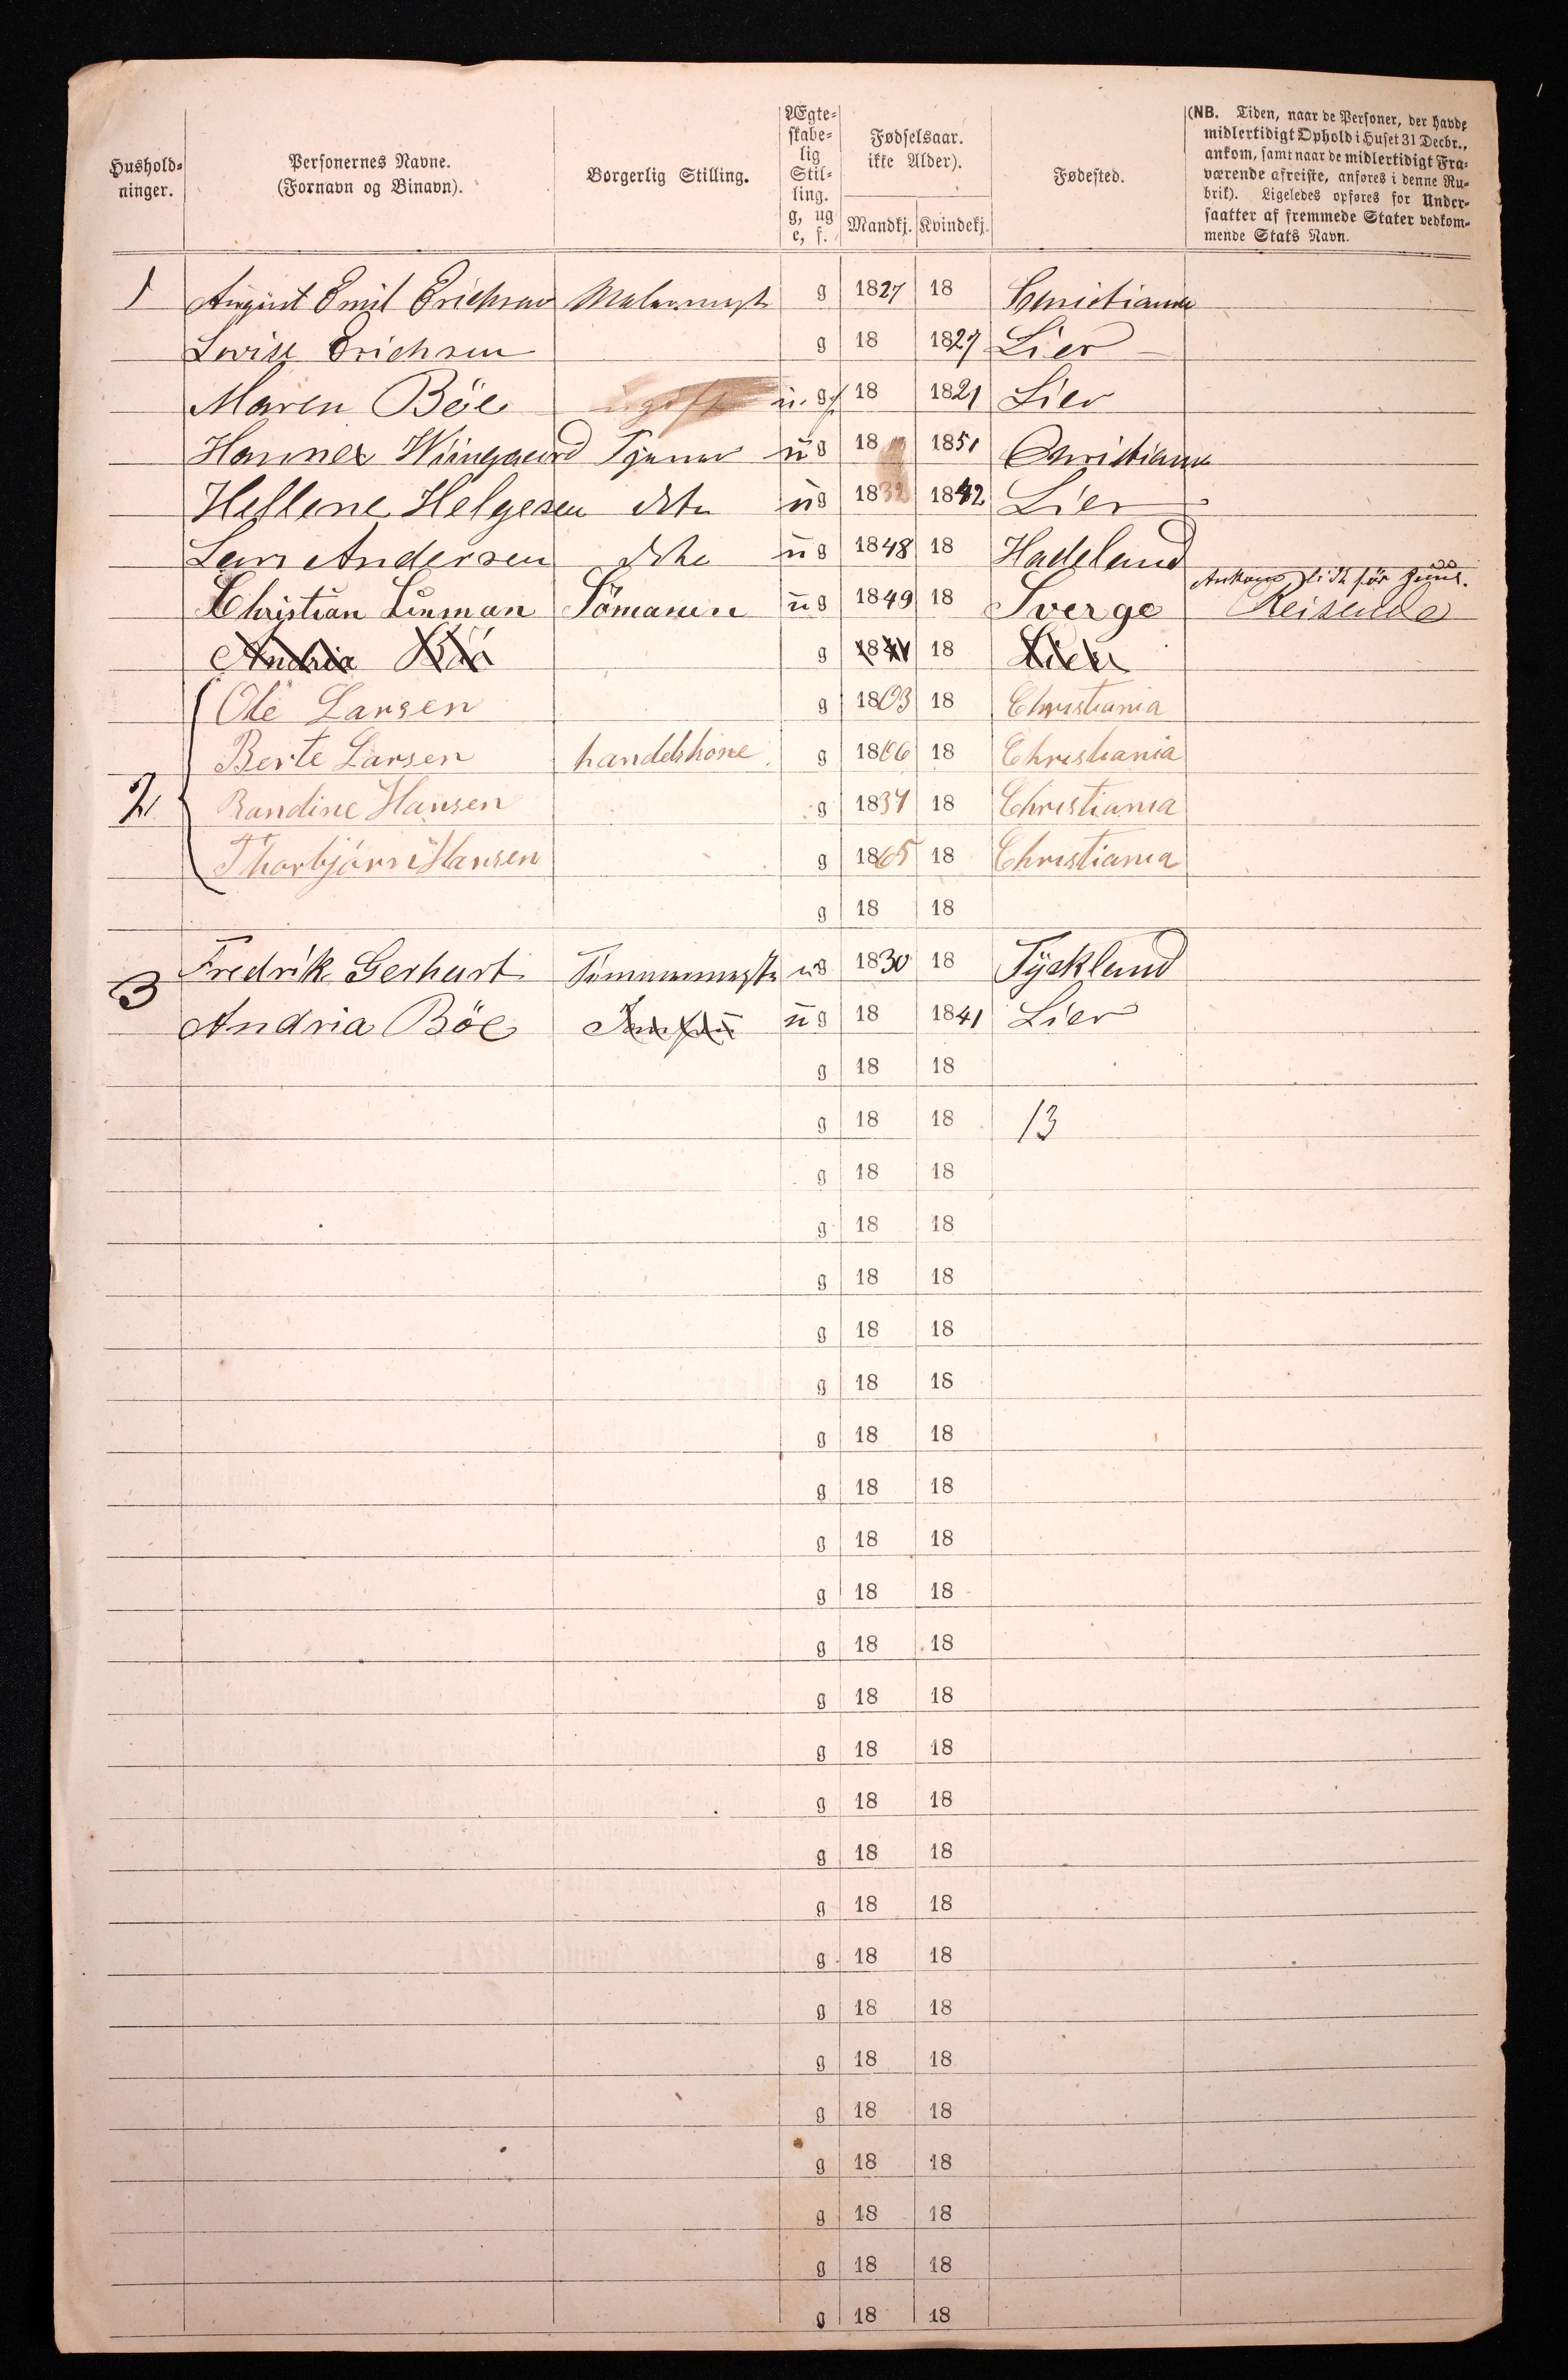 Hushold-
ninger.
Personernes Navne.
(Fornavn og Binavn).
Borgerlig Stilling.
Ægte-
skabe-
lig
Stil-
ling.
g, ug
e, f.
Fødselsaar.
ikke Alder).
Mandkj. Kvindekj.
Fødested.
(NB. Tiden, naar de Personer, der havde
midlertidigt Ophold i Huset 31 Decbr.,
ankom, samt naar de midlertidigt Fra-
værende afreiste, anføres i denne Ru-
brik). Ligeledes opføres for Under-
saatter af fremmede Stater vedkom-
mende Stats Navn.
1 August Emil Erichsen g 1827 18
Lovise Erichsen g 18 1827 Lier
Maren Böe ugift u.g 18 1821 Lier
Wiingaard ug 18 1851 Christiania
Hellene Helgesen ug 1832 1842 Lier
Lars Andersen ug 1848 18 Hadeland
Christian Linman Sömann ug 1849 18 Sverge Ankom lidt för Juul.
Reisende
Andria Böe g 1841 18 Lier
Ole Larsen g 1803 18 Christiania
Berte Larsen handelskone g 1806 18 Christiania
2 Randine Hansen g 1834 18 Christiania
Thorbjörn Hansen g 1865 18 Christiania
g 18 18
3 Fredrik Gerhart ug 1830 18 Tyskland
Andria Böe ug 18 1841 Lier
g 18 18
g 18 18 13
g 18 18
g 18 18
g 18 18
g 18 18
g 18 18
g 18 18
g 18 18
g 18 18
g 18 18
g 18 18
g 18 18
g 18 18
g 18 18
g 18 18
g 18 18
g 18 18
g 18 18
g 18 18
g 18 18
g 18 18
g 18 18
g 18 18
g 18 18